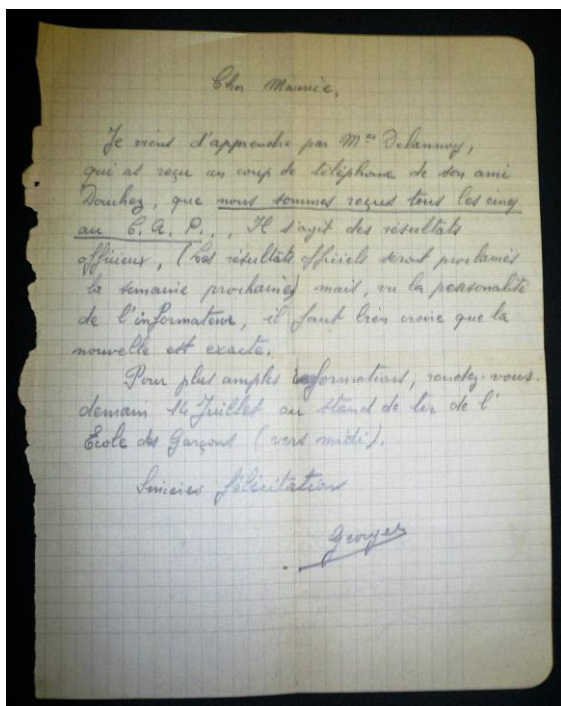 Cher Maurice,
Je viens d'apprendre par Mr Delannoy,
qui as reçu un coup de téléphone de son ami
Douchez, que nous sommes reçus tous les cinq
au C. A. P.., Il s'agit des résultats
officieux, (Les résultats officiels seront proclamés
la semaine prochaine) mais, vu la personalité
de l'informateur, il faut bien croire que la
nouvelle est exacte.
Pour plus amples informations, rendez-vous
demain 14 Juillet au stand de tir de l'
Ecole des Garçons (vers midi).
Sincères félicitations
Georges